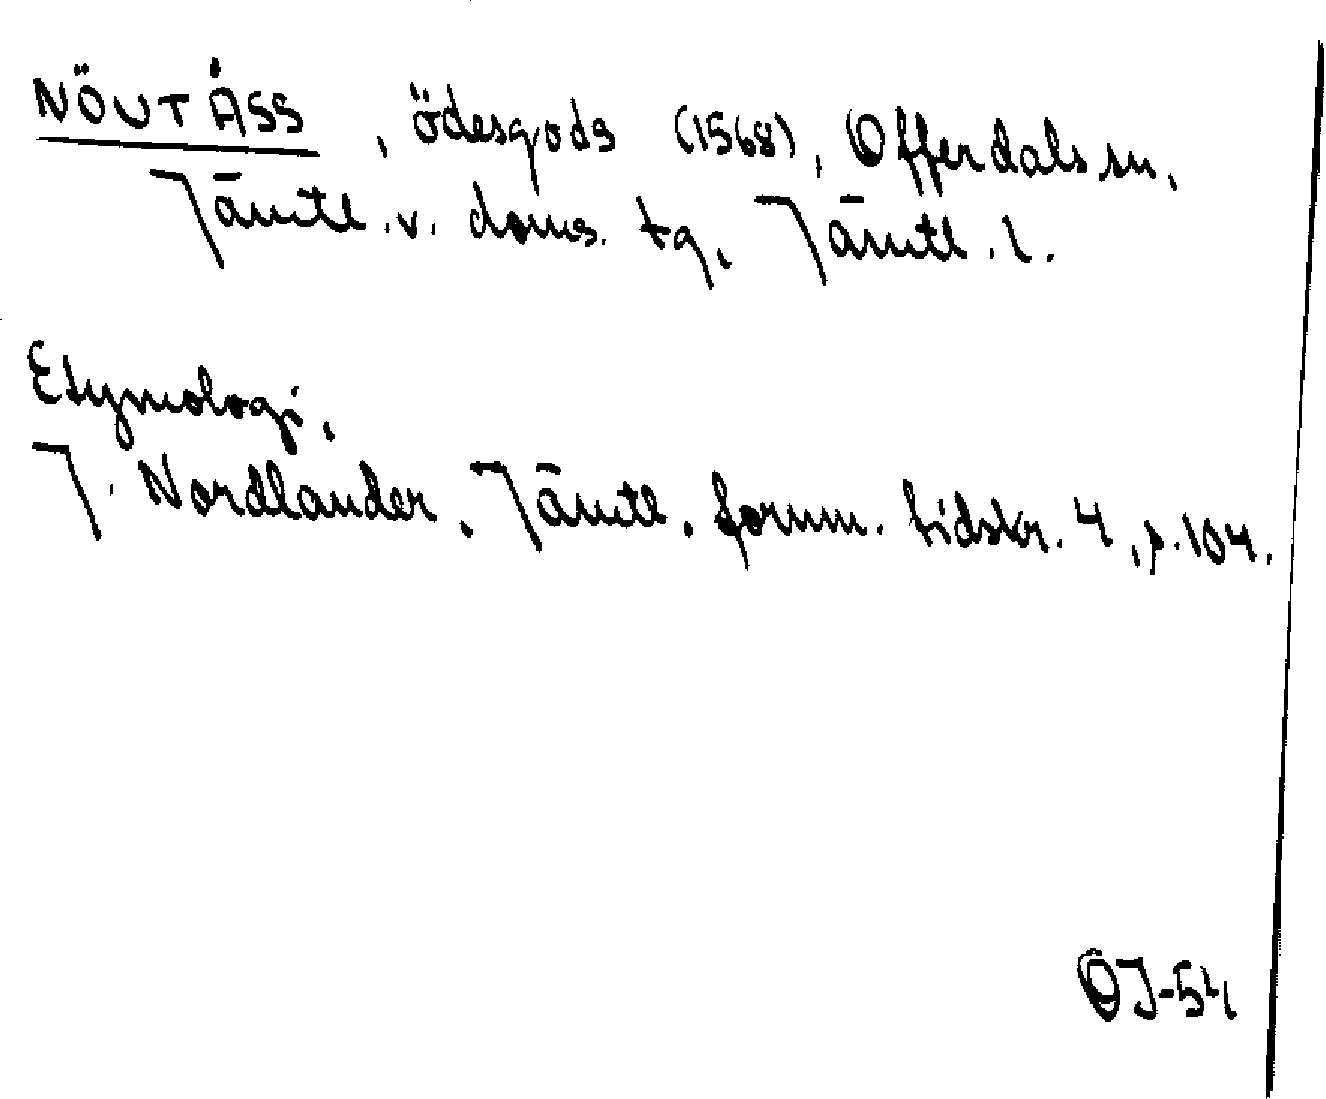 NÖUTÅSS, ödesgods (1568), Offerdals sn,
Jämtl. v. doms. tg, Jämtl. l.
Etymologi,
J. Nordlander. Jämtl. fornm. tidskr. 4, p. 104.
ÖJ-54